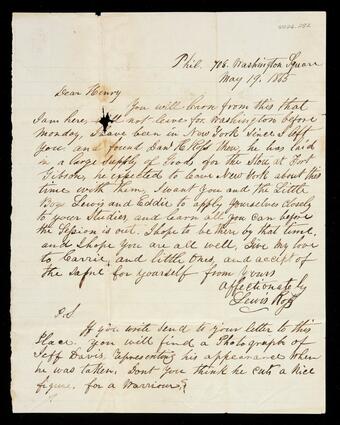 Phil. 706. Washington Square
May 19. 1865
Dear Henry
You will learn from this that
I am here, will not leave for Washington before
Monday, I have been in New York since I left
you and found Dan H Ross there, he was laid
in a large supply of Goods for the Store at Fort
Gibson, he expected to leave New York about this
time with them, I want you and the Little
Boys Lewis and Eddie to apply yourselves closely
to your Studies, and learn all you can before
the Session is out. I hope to be there by that time,
and I hope you are all well, Give my love
to Carrie, and little Ones, and accept of
the Same for yourself from yours
affectionate by
Lewis Ross
P.S
If you write send to your letter to this
Place. you will find a Photograph of
Jeff Davis, representing his appearance when
he was taken. Dont you think he cuts a Nice
figure. for a Warriour?